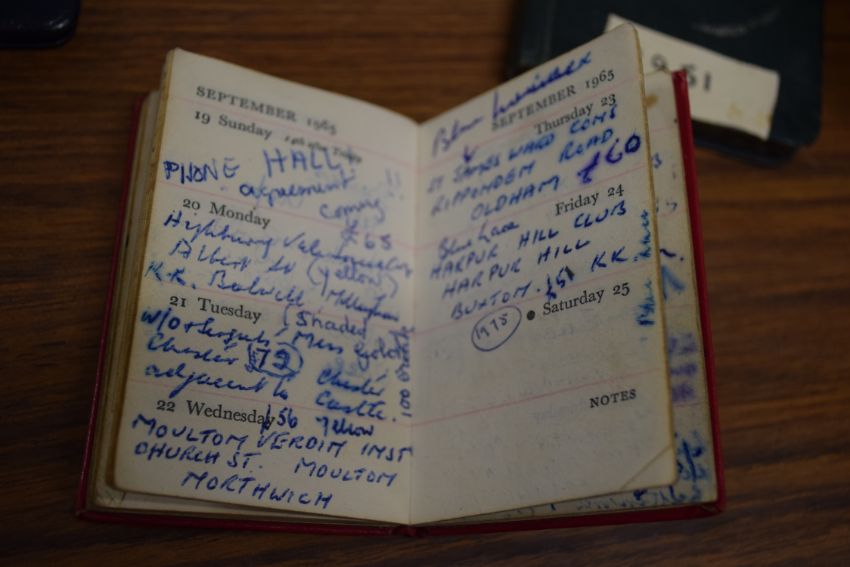 SEPTEMBER 1965
19 Sunday
PHONE HALL!!
agreement
coming
20 Monday
£65
Highbury
Albert St (yellow)
K.K.
21 Tuesday (Shaded
W/O Sergts' Mess yellow
Chester 72 Chester
adjacent to Castle.
22 Wednesday £56 yellow
MOULTOM VERDIM INST
CHURCH ST. MOULTOM
MORTHWICH
SEPTEMBER 1965
Thursday 23
21 JAMES WARD CONS
RIPPONDEM ROAD
OLDHAM £60
Friday 24
Blue Lace
HARPUR HILL CLUB
HARPUR HILL
BUXTOM. £51 KK
1975 Saturday 25
NOTES
9.51